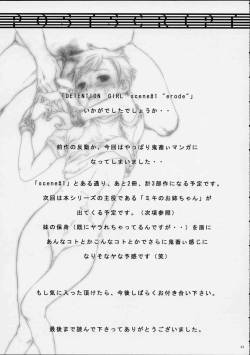 POSTSCRIPT
「DETENTION GIRL scene#1 "erode"」
いかがでしたでしょうか・・
前作の反動か、今回はやっぱり鬼畜ぃマンガに
なってしまいました・・
「scene#1」とある通り、あと2冊、計3部作になる予定です。
次回は本シリーズの主役である「ミキのお姉ちゃん」が
出てくる予定です。（次項参照）
妹の保身（既にヤられちゃってるんですが・・）を盾に
あんなコトとかこんなコトとかでさらに鬼畜ぃ感じに
なりそなかな予感です（笑）
もし気に入って頂けたら、今後しばらくお付き合い下さい。
最後まで読んで下さってありがとうございました。